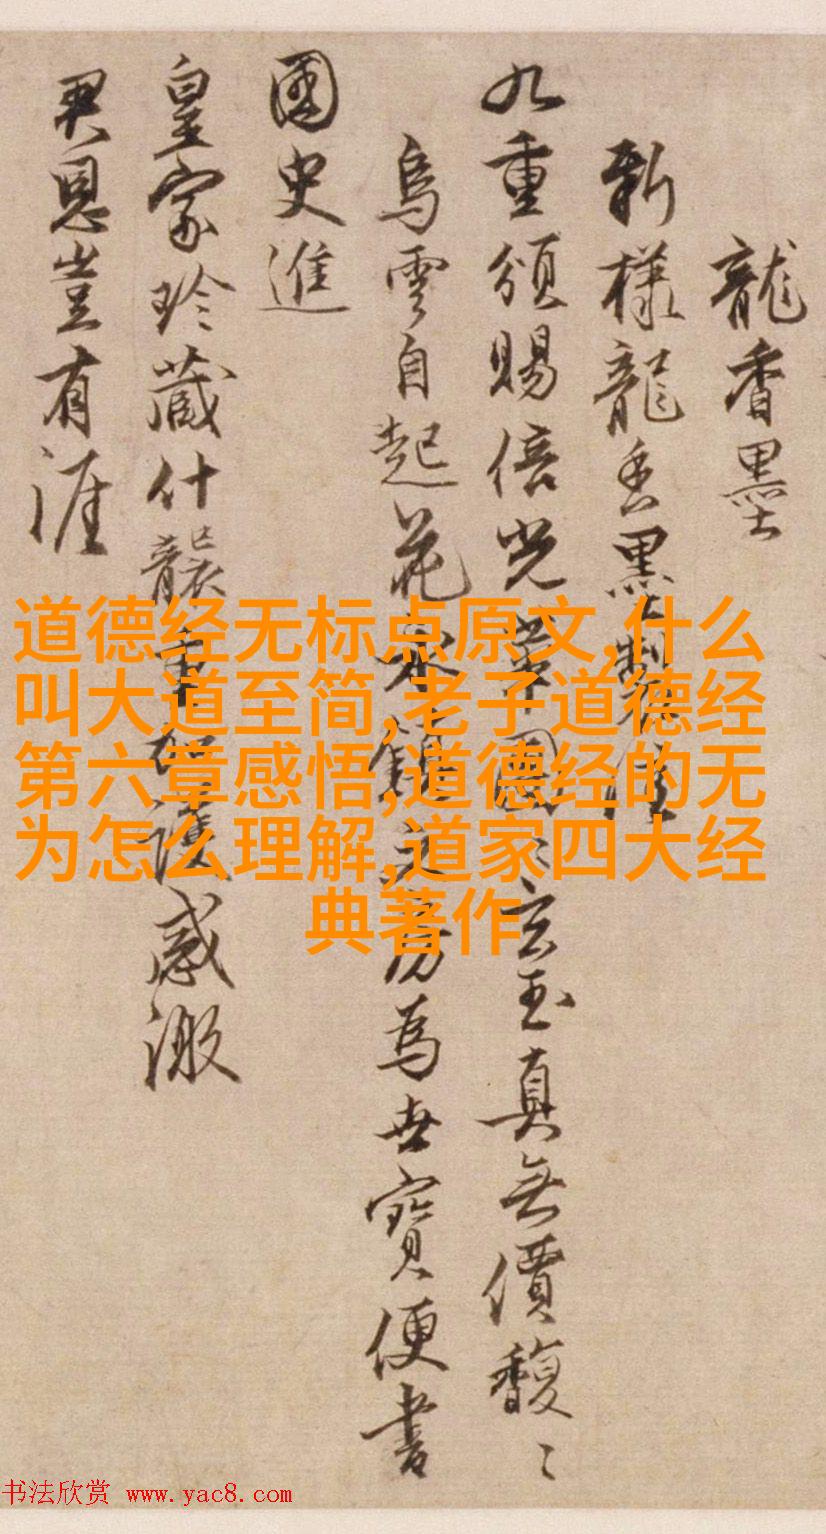 龍香墨
新樣龍香墨製佳
九重頒賜倍光華圓〻玄玉真無價馥〻
烏雲自起花永鎮文房為世寶便書
國史進
皇家珍藏什襲重加護感激
君恩豈有涯
道德经无标点原文,什么
叫大道至简,老子道德经
第六章感悟,道德经的无
为怎么理解,道家四大经
典著作
书法欣赏 www.yac8.com